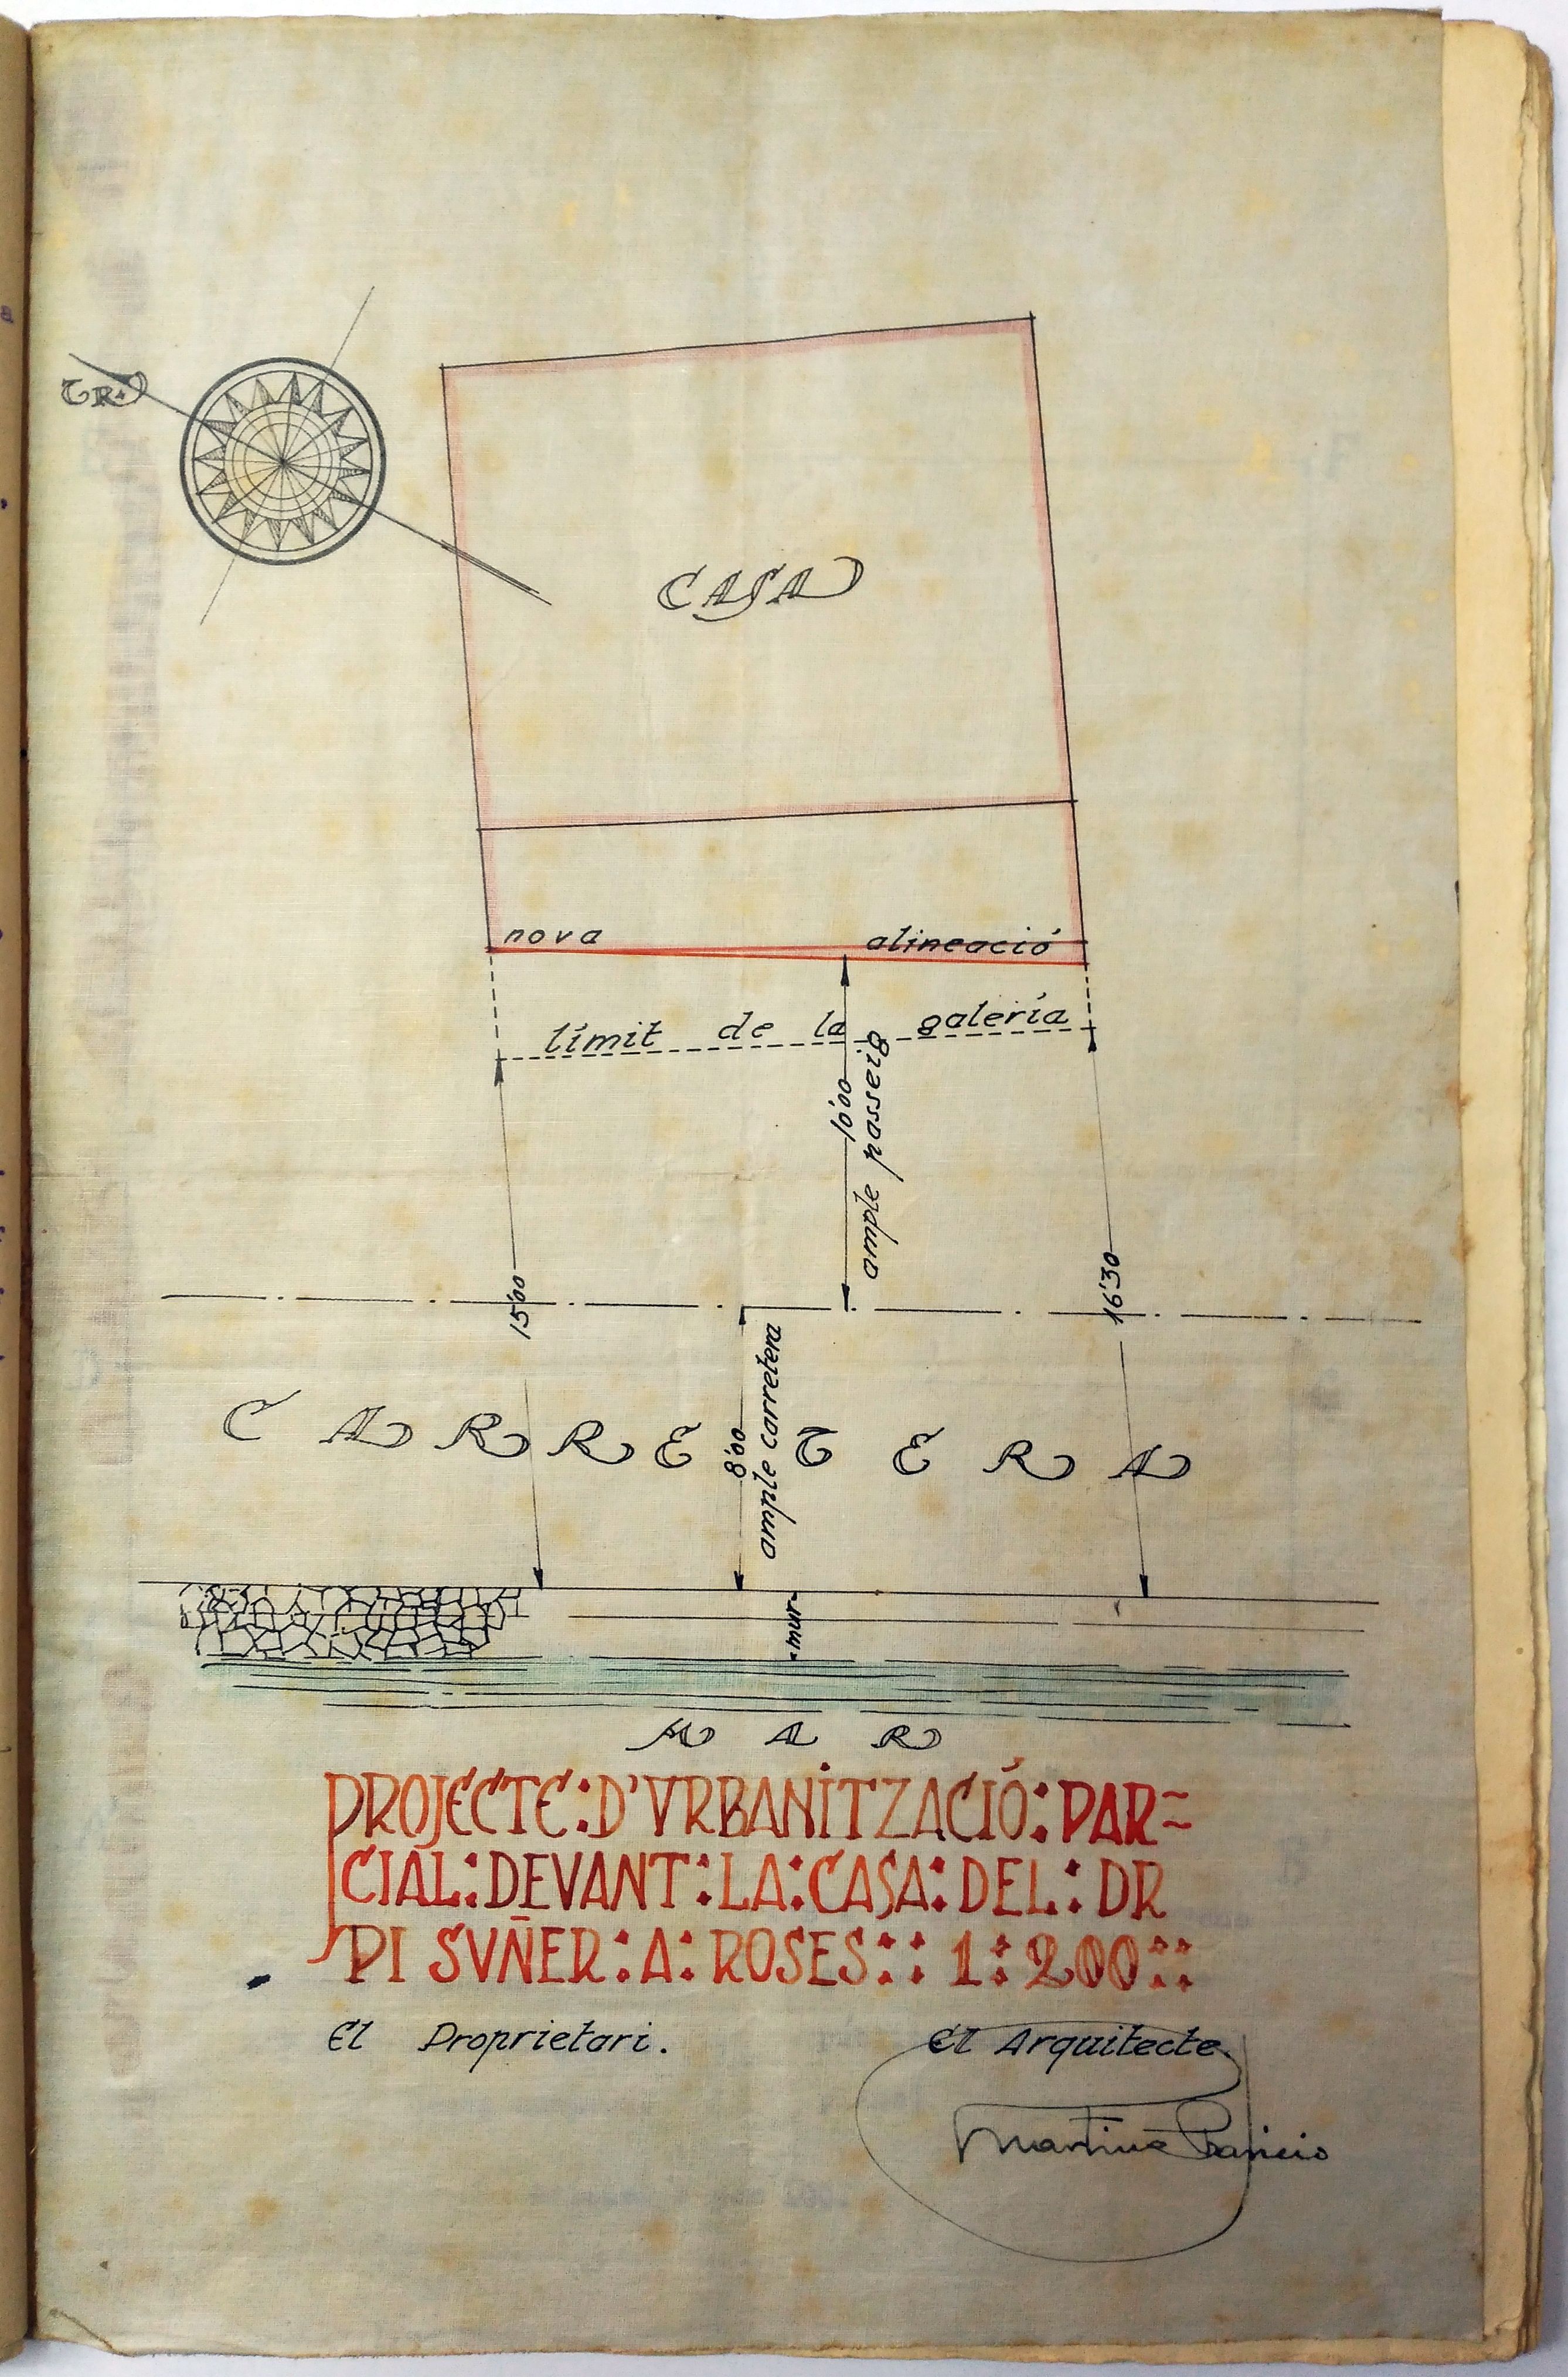 TR
CASA
nova alineació
límit de la galería
10'00
ample passeig
15'00
16'30
CARRETERA
8'00
ample carretera
mur
MAR
PROJECTE:D'VRBANITZACIÓ:PAR~
CIAL:DEVANT:LA:CASA:DEL:DR
PI SVÑER:A:ROSES:: 1:200::
El Proprietari.
El Arquitecte.